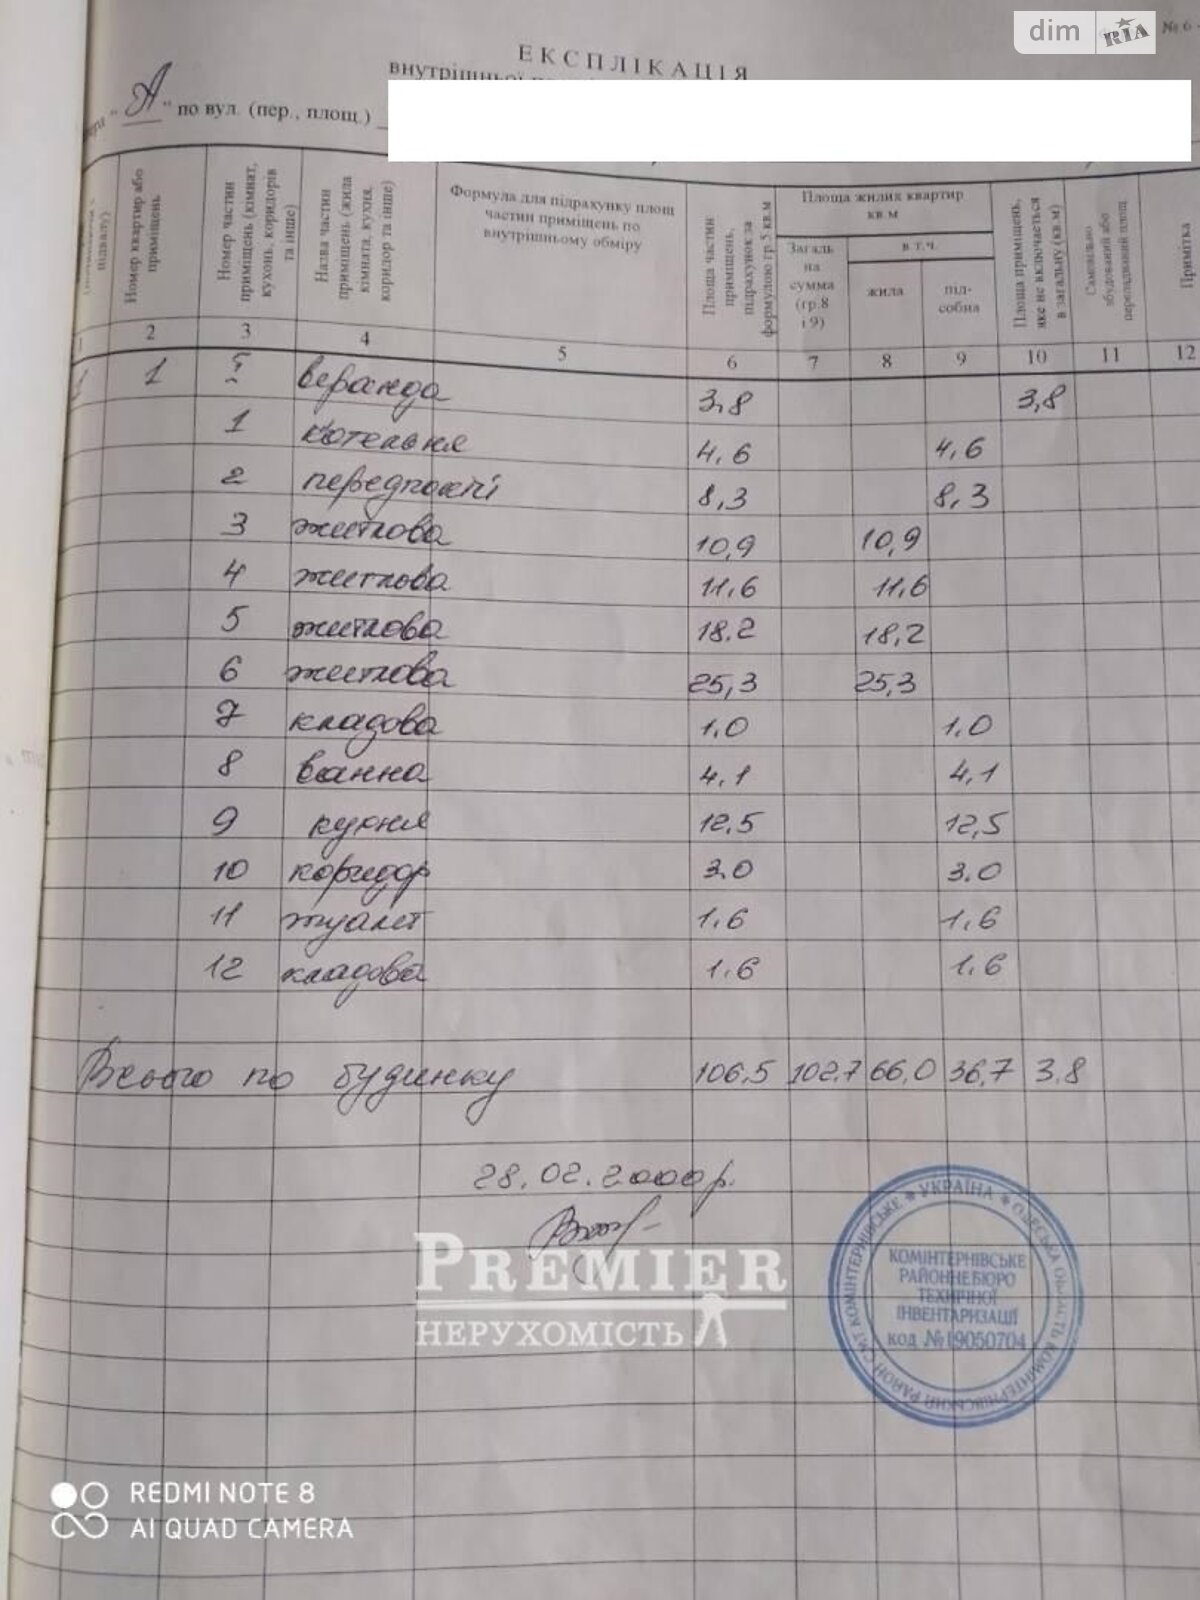 dim RIA
№ 6
ЕКСПЛІКАЦІЯ
внутрішньої
"А" по вул. (пер., площ.)
підвалу)
Номер квартир або приміщень
Номер частин приміщень (кімнат, кухонь, коридорів та інше)
Назва частин приміщень (жила кімната, кухня, коридор та інше)
Формула для підрахунку площ частин приміщень по внутрішньому обміру
Площа частин приміщень, підрахунок за формулою гр.5 кв.м
Площа жилих квартир кв м
Загаль на сумма (гр.8 і 9)
в т.ч.
жила
під-собна
Площа приміщень, яке не включається в загальну (кв.м)
Самовільно збудований або переладнаний площ
Примітка
1 2 3 4 5 6 7 8 9 10 11 12
1 1 I веранда 3,8 3,8
1 котельня 4,6 4,6
2 передпокій 8,3 8,3
3 житлова 10,9 10,9
4 житлова 11,6 11,6
5 житлова 18.2 18,2
6 житлова 25,3 25,3
7 кладова 1,0 1,0
8 ванна 4,1 4,1
9 кухня 12,5 12,5
10 коридор 3.0 3.0
11 туалет 1,6 1,6
12 кладова 1,6 1,6
Всього по будинку 106,5 102,7 66,0 36,7 3,8
28.02.2000р.
PREMIER
НЕРУХОМІСТЬ
УКРАЇНА * ОДЕСЬКА ОБЛАСТЬ КОМІНТЕРНІВСЬКИЙ РАЙОН СМТ КОМІНТЕРНІВСЬКЕ *
КОМІНТЕРНІВСЬКЕ
РАЙОННЕ БЮРО
ТЕХНІЧНОЇ
ІНВЕНТАРИЗАЦІЇ
код №19050704
REDMI NOTE 8
AI QUAD CAMERA